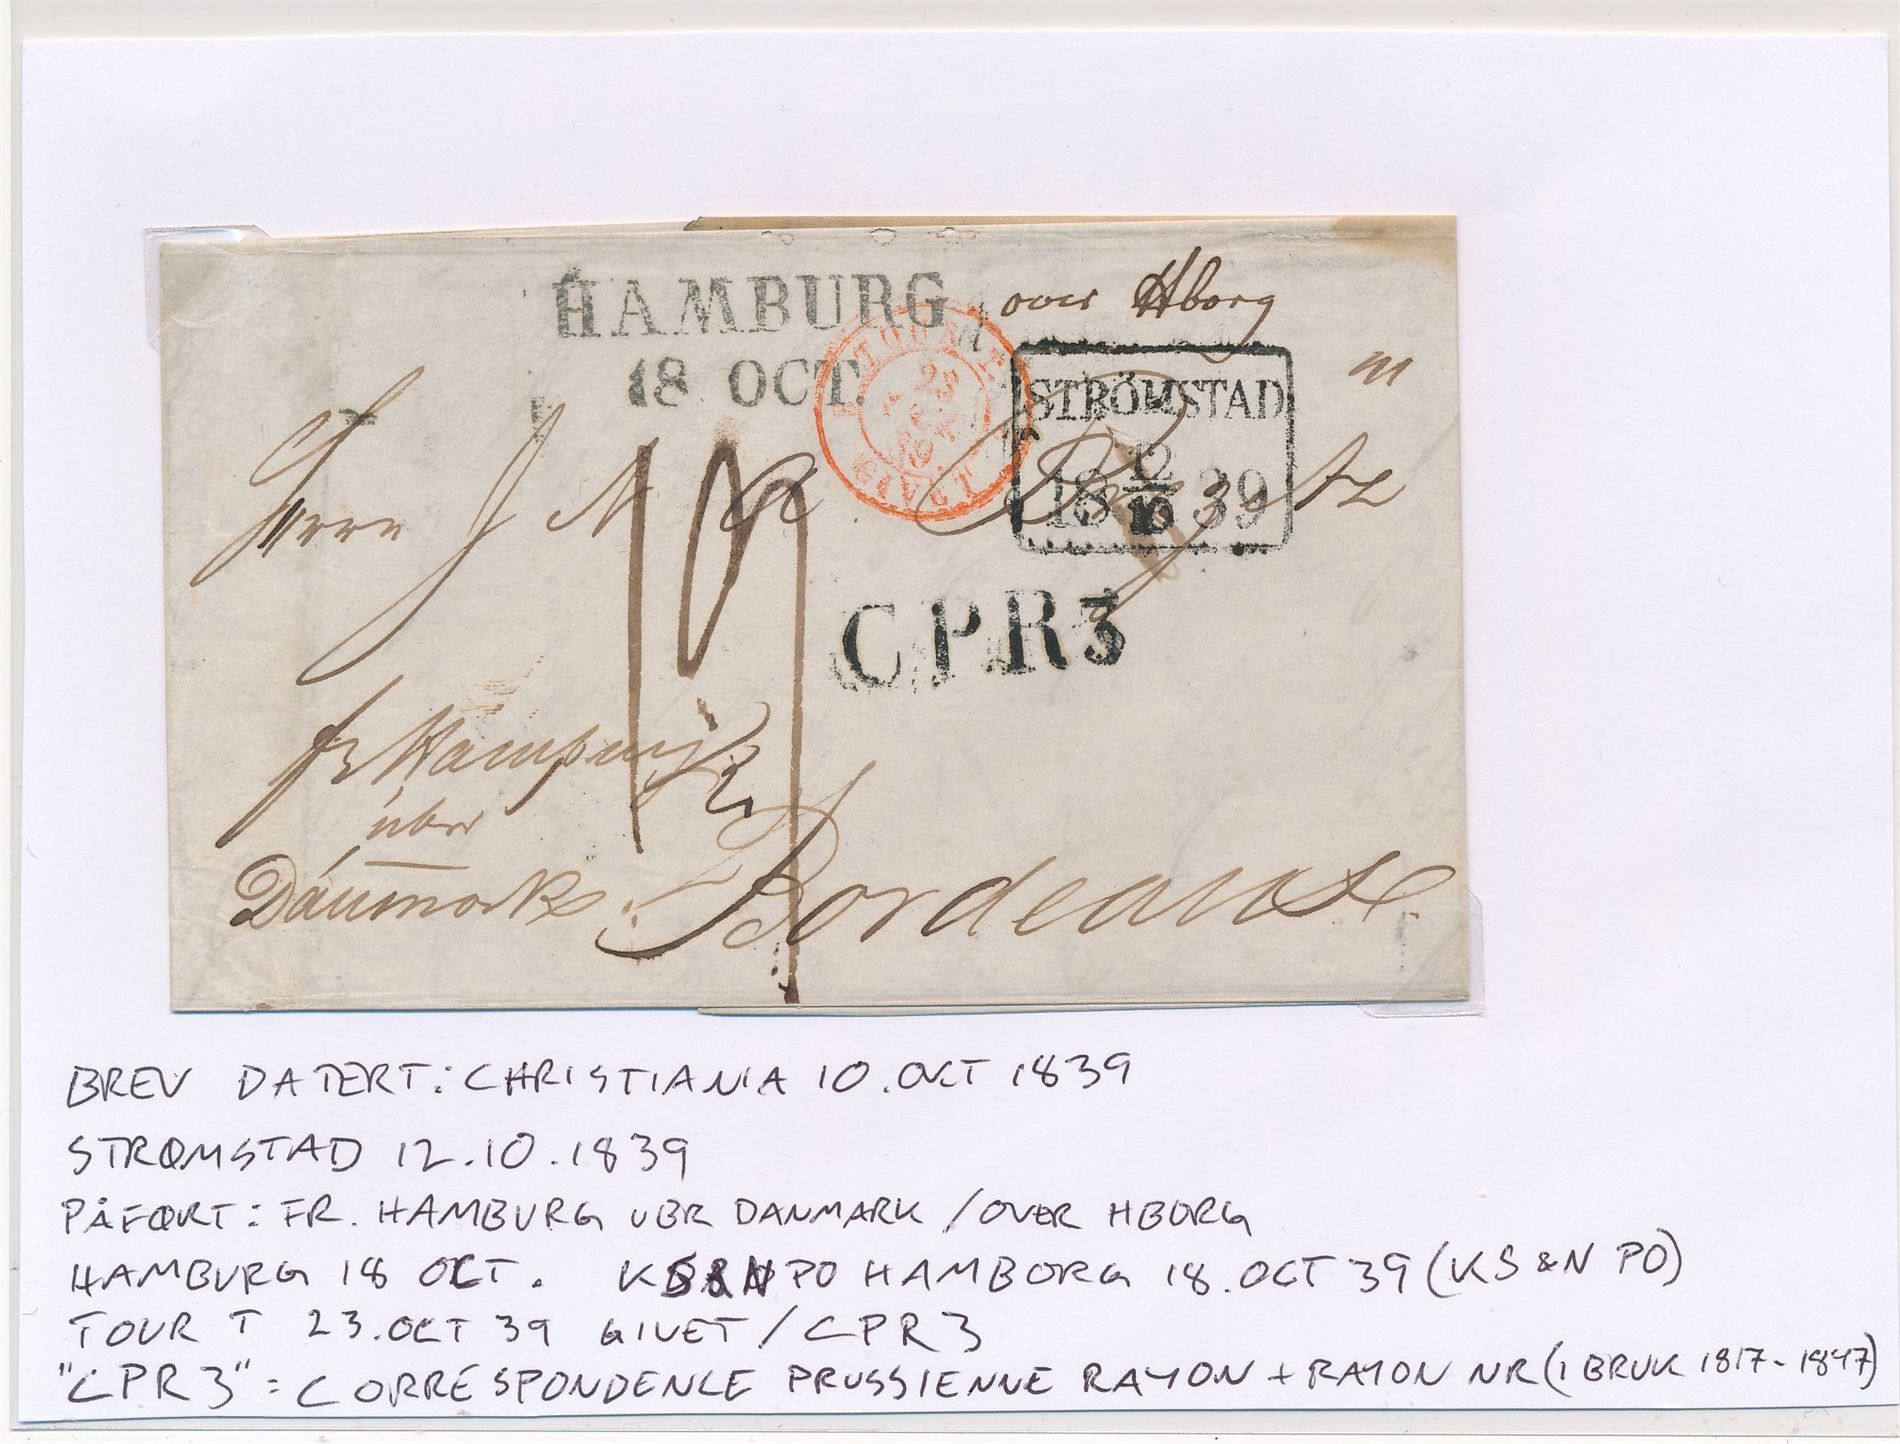 HAMBURG
18 OCT.
over Hborg
STRÖMSTAD
12
18 10 39
GIVET
Herrn J
CPR3
fr Hamburg
über
Danmark
Bordeaux
BREV DATERT: CHRISTIANIA 10. OCT 1839
STRØMSTAD 12.10.1839
PÅFØRT: FR. HAMBURG UBR DANMARK / OVER HBORG
HAMBURG 18 OCT. KS&N PO HAMBORG 18. OCT 39 (KS&N PO)
TOUR T 23. OCT 39 GIVET / CPR 3
"CPR3" = CORRESPONDENCE PRUSSIENNE RAYON + RAYON NR (I BRUK 1817-1847)